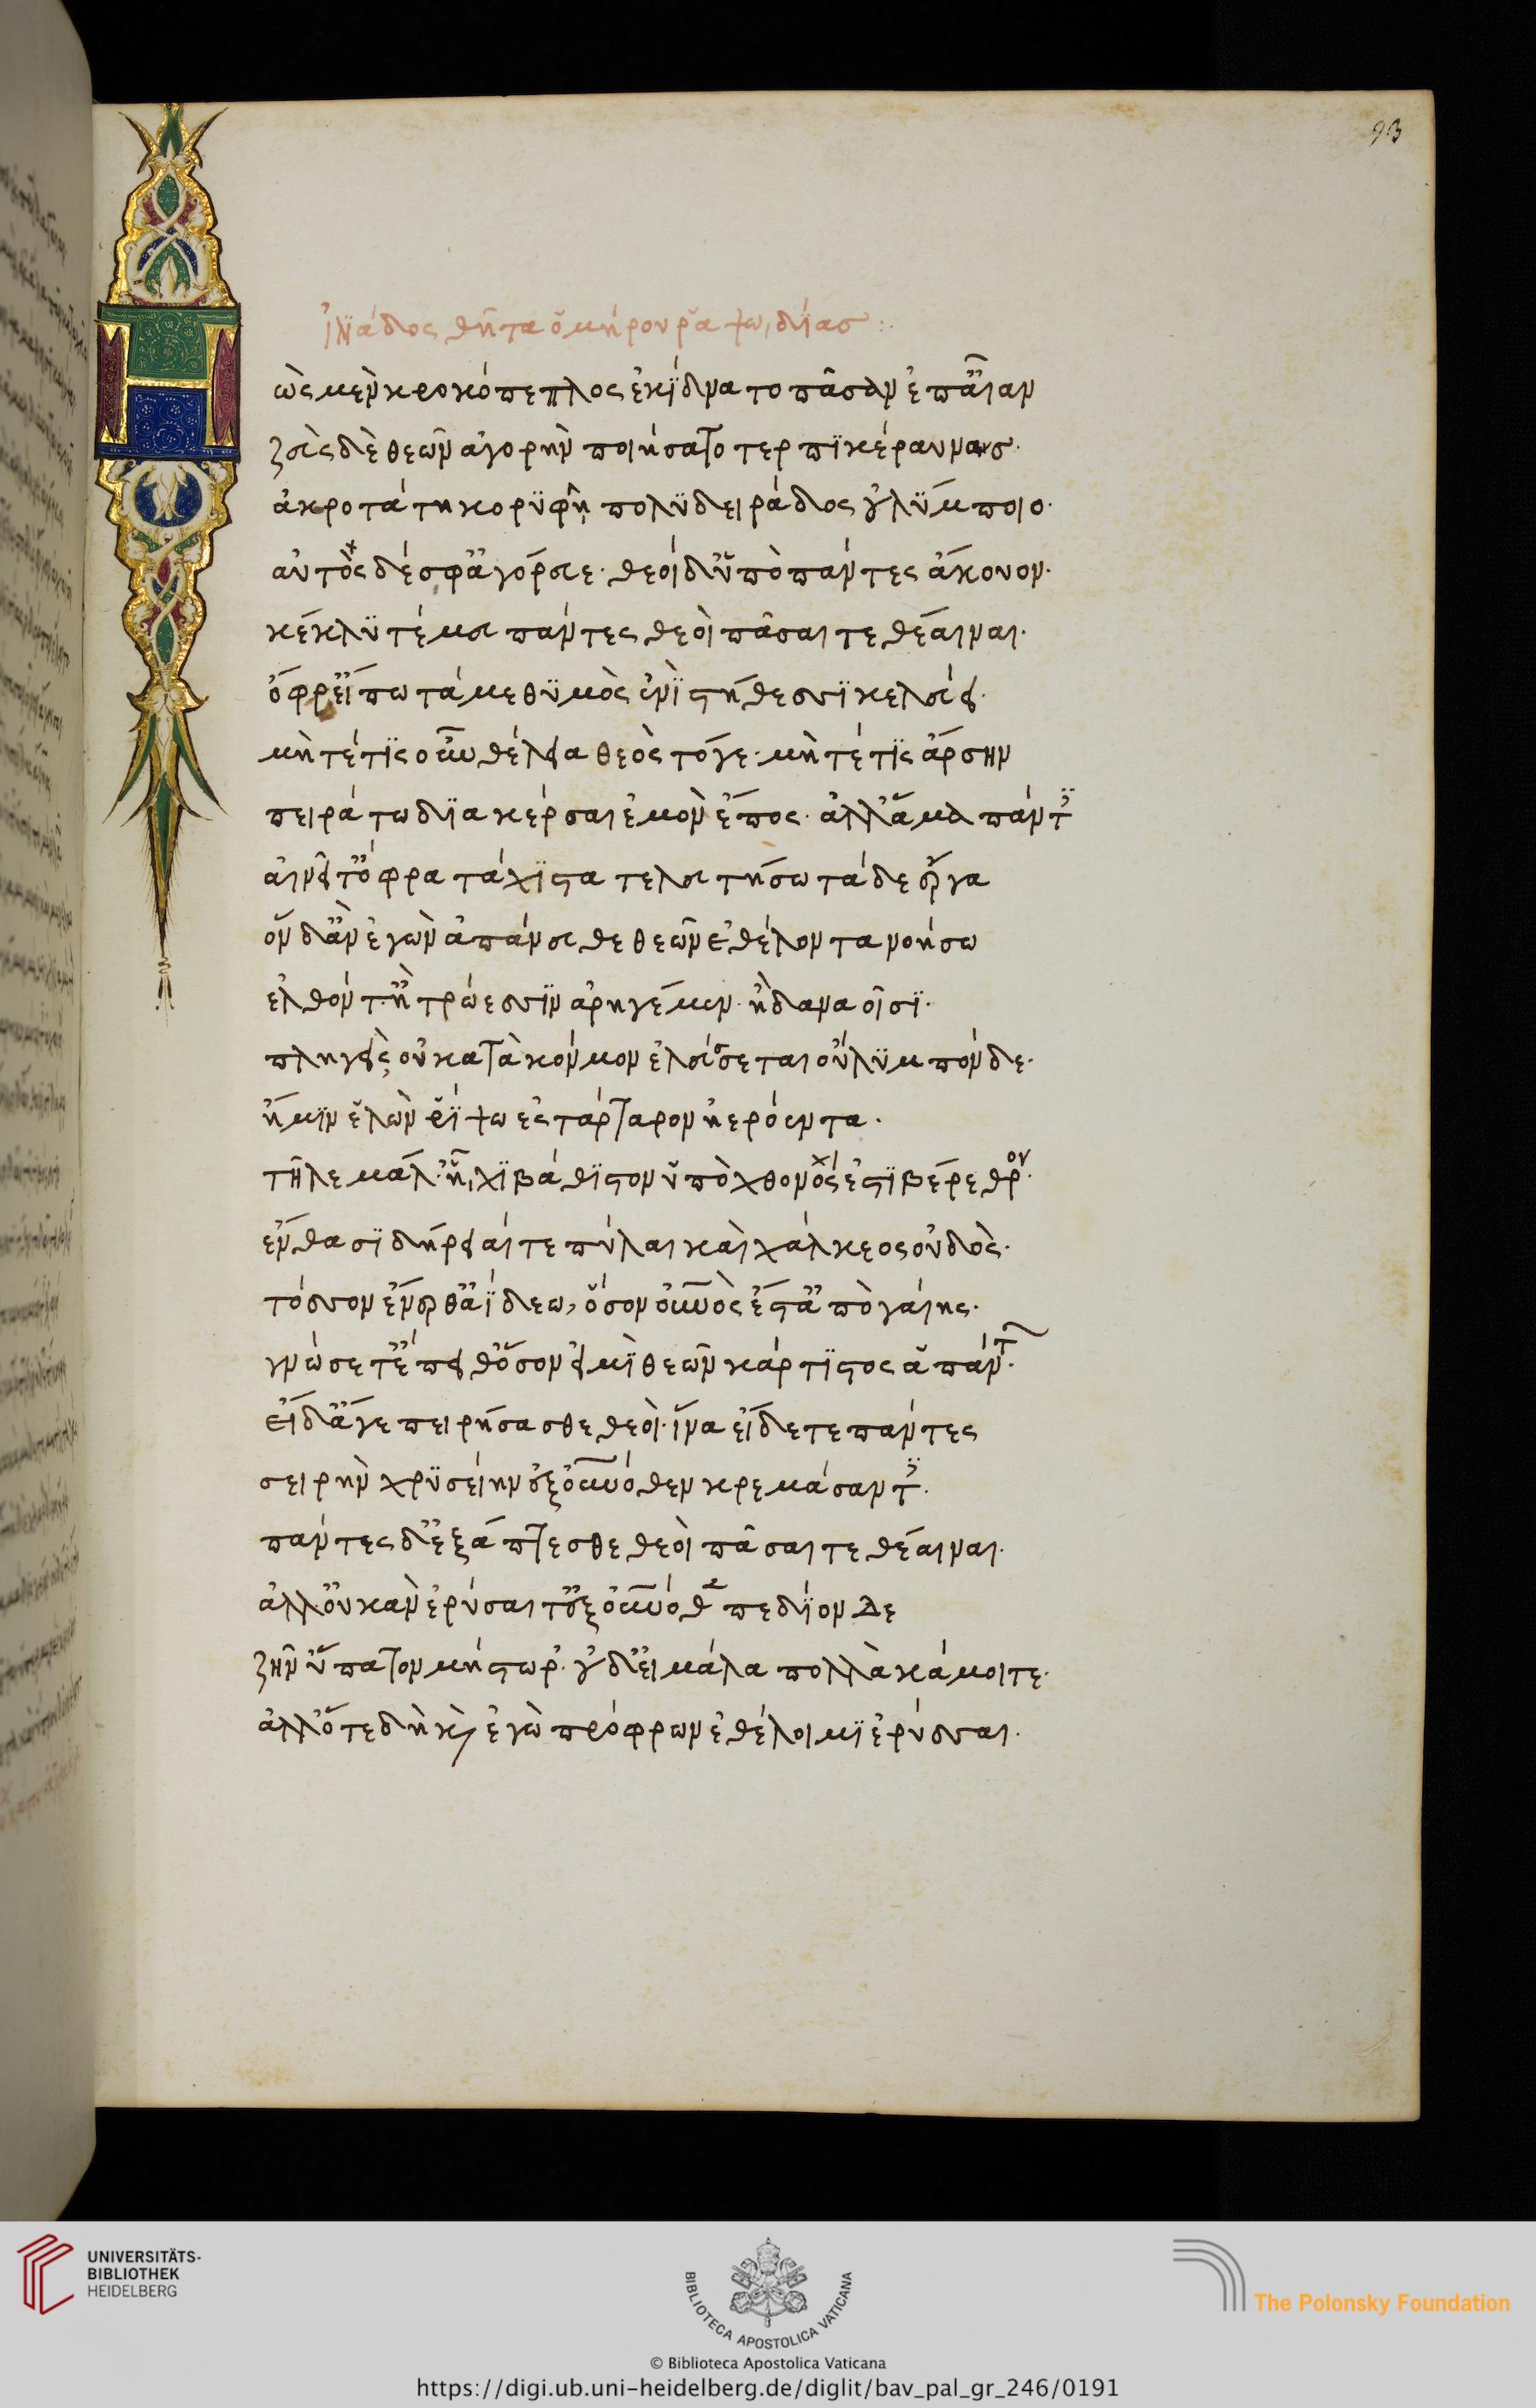 93
ἰλιάδος θῆτα ὁμήρου ῥαψωιδίας :.
ὼς μὲν κροκόπεπλος ἐκίδνατο πᾶσαν ἐπ᾽ αἶαν
ζεὺς δὲ θεῶν ἀγορὴν ποιήσατο τερπικέραυνος.
ἀκροτάτη κορϋφῆ πολϋδειράδος οὐλύμποιο.
αὐτὸς δέ σφ᾽ ἀγόρευε. θεοὶ δ᾽ ὑπὸ πάντες ἄκουον.
κέκλϋτέ μευ πάντες θεοὶ πᾶσαι τε θέαιναι.
ὄφρ᾽ εἴπω τά με θϋμὸς ἐνὶ στήθεσσι κελεύει.
μὴ τέ τις οὖν θέλεια θεὸς τόγε. μὴ τέ τις ἄρσην
πειράτω διακέρσαι ἐμὸν ἔπος. ἀλλ᾽ ἅμα πάντες
αἰνεῖτ᾽ ὄφρα τάχιστα τελευτήσω τάδε ἔργα
ὃν δ᾽ ἂν ἐγὼν ἀπάνευθε θεῶν ἐθέλοντα νοήσω
ἐλθόντ. ἢ τρώεσσιν ἀρηγέμεν. ἢ δαναοῖσι.
πληγεὶς οὐ κατὰ κόσμον ἐλεύσεται οὔλϋμπόνδε.
ἤ μιν ἑλὼν ῥίψω ἐς τάρταρον ἠερόεντα.
τῆλε μάλ. ἧχι βάθιστον ὑπὸ χθονός ἐστι βέρεθρον.
ἔνθα σιδήρειαί τε πύλαι καὶ χάλκεος οὐδὸς.
τόσσον ἔνερθ᾽ ἀΐδεω, ὅσον οὐρανὸς ἔστ᾽ ἀπὸ γαίης.
γνώσετ᾽ ἔπειθ᾽ ὅσον εἰμὶ θεῶν κάρτιστος ἁπάντων.
εἰ δ᾽ ἄγε πειρήσασθε θεοὶ. ἵνα εἴδετε πάντες
σειρὴν χρϋσείην ἐξ οὐρανόθεν κρεμάσαντες.
πάντες δ᾽ ἐξάπτεσθε θεοὶ πᾶσαι τε θέαιναι.
ἀλλ᾽ οὐκ ἂν ἐρύσαιτ᾽ ἐξ οὐρανόθεν πεδίον δε
ζῆν ὕπατον μήστωρ. οὐδ᾽ εἰ μάλα πολλὰ κάμοιτε.
ἀλλ᾽ ὅτε δὴ καὶ ἐγὼ πρόφρων ἐθέλοιμι ἐρύσσαι.
UNIVERSITÄTS-
BIBLIOTHEK
HEIDELBERG
BIBLIOTECA APOSTOLICA VATICANA
The Polonsky Foundation
© Biblioteca Apostolica Vaticana
https://digi.ub.uni-heidelberg.de/diglit/bav_pal_gr_246/0191